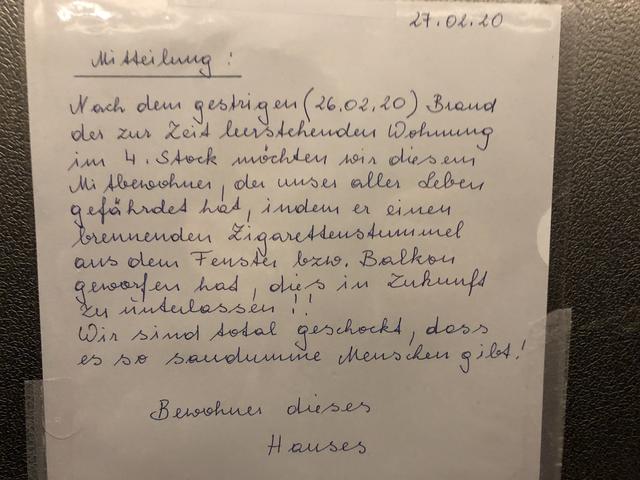 27.02.20
Mitteilung :
Nach dem gestrigen (26.02.20) Brand
der zur Zeit leerstehenden Wohnung
im 4. Stock möchten wir diesem
Mitbewohner, der unser aller Leben
gefährdet hat, indem er einen
brennenden Zigarettenstummel
aus dem Fenster bzw. Balkon
geworfen hat, dies in Zukunft
zu unterlassen !!
Wir sind total geschockt, dass
es so saudumme Menschen gibt!
Bewohner dieses
Hauses